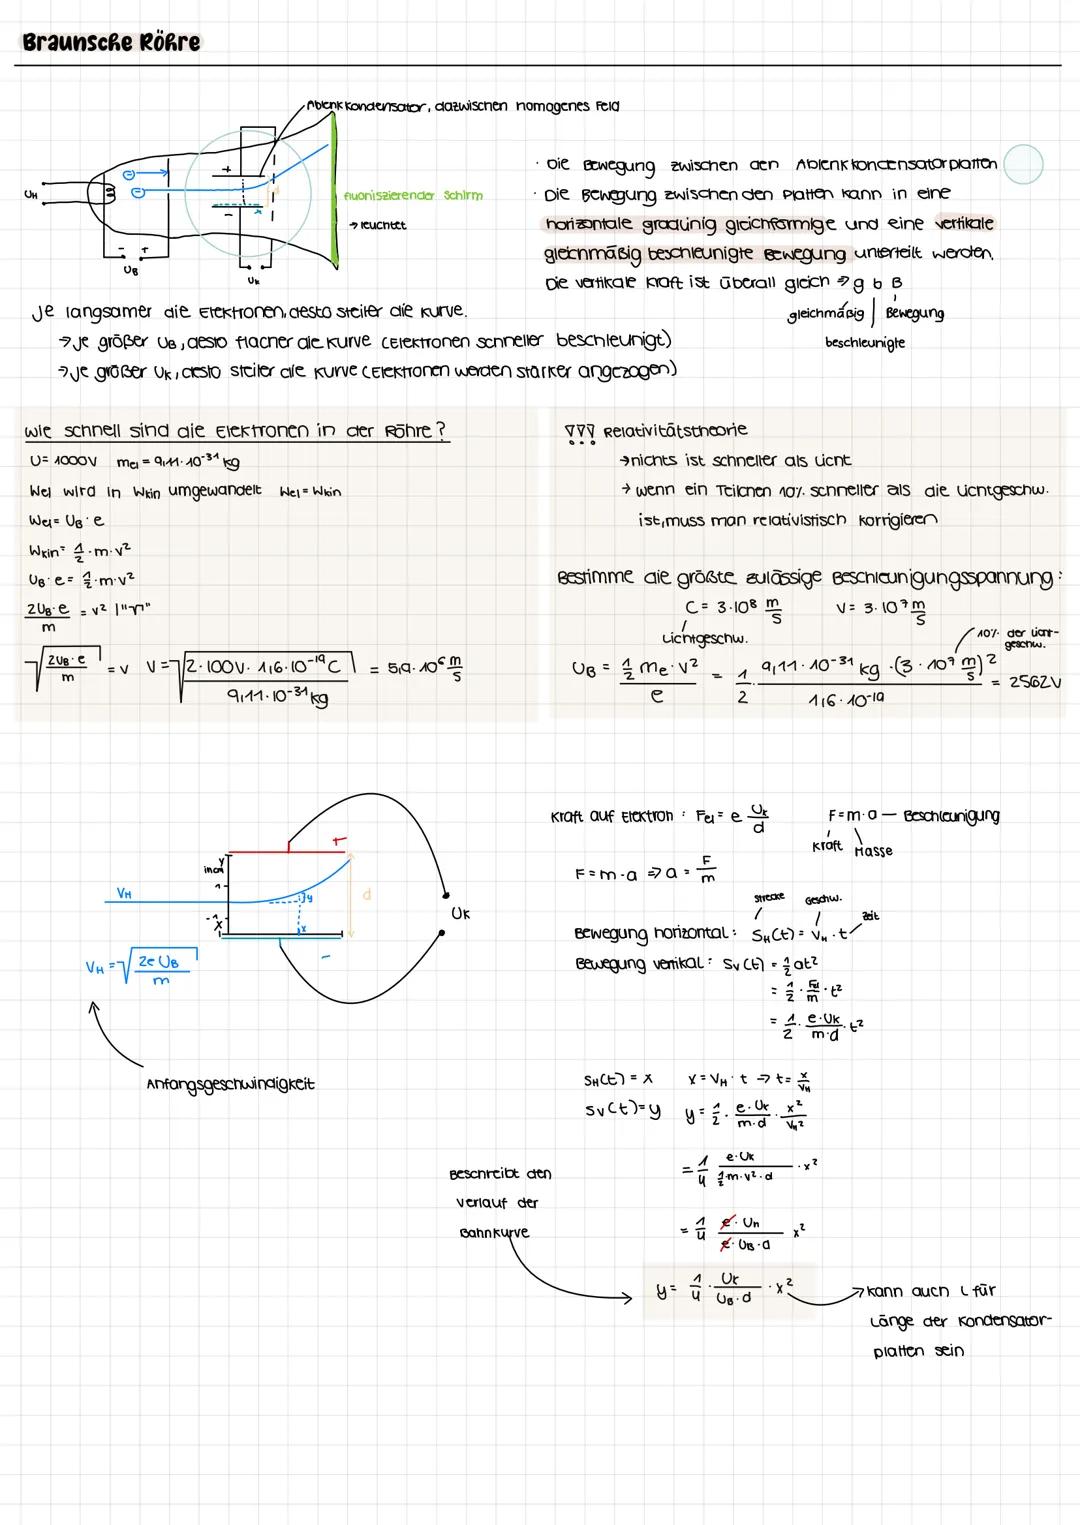 Braunsche Röhre
Ablenkkondensator, dazwischen homogenes Feld
UH
fluoriszierender Schirm
→ leuchtet
- +
UB
+
-
UK
· Die Bewegung zwischen den Ablenkkondensatorplatten
· Die Bewegung zwischen den Platten kann in eine
horizontale gradlinig gleichförmige und eine vertikale
gleichmäßig beschleunigte Bewegung unterteilt werden.
Die vertikale Kraft ist überall gleich ⇒ g b B
gleichmäßig
Bewegung
beschleunigte
Je langsamer die Elektronen, desto steiler die Kurve.
→ Je größer UB, desto flacher die Kurve (Elektronen schneller beschleunigt)
→ Je größer UK, desto steiler die Kurve (Elektronen werden stärker angezogen)
Wie schnell sind die Elektronen in der Röhre?
U= 1000V mel = 9,11·10⁻³¹ kg
Wel wird in Wkin umgewandelt Wel = Wkin
Wel = UB · e
Wkin = 1/2 · m · v²
UB · e = 1/2 · m · v²
2UB·e/m = v² | "√"
√(2UB·e/m) = v v = √(2·100V·1,6·10⁻¹⁹C / 9,11·10⁻³¹kg) = 5,9·10⁶ m/s
!!! Relativitätstheorie
→ nichts ist schneller als Licht
→ wenn ein Teilchen 10% schneller als die Lichtgeschw.
ist, muss man relativistisch korrigieren
Bestimme die größte zulässige Beschleunigungsspannung:
C = 3·10⁸ m/s V = 3·10⁷ m/s
Lichtgeschw.
10% der Licht-
geschw.
UB = 1/2 me · v² / e = 1/2 · 9,11·10⁻³¹ kg · (3·10⁷ m/s)² / 1,6·10⁻¹⁹ = 2562V
y
in cm
1
-1
x
VH
+
y
x
d
-
UK
VH = √(2e UB / m)
Anfangsgeschwindigkeit
Kraft auf Elektron : Fel = e UK/d F = m·a — Beschleunigung
Kraft Masse
F = m·a ⇒ a = F/m
Strecke Geschw. Zeit
Bewegung horizontal: SH(t) = VH · t
Bewegung vertikal: SV(t) = 1/2 at²
= 1/2 · Fel/m · t²
= 1/2 · e·UK/m·d · t²
SH(t) = x x = VH · t → t = x/VH
SV(t) = y y = 1/2 · e·UK/m·d · x²/VH²
= 1/4 e·UK / 1/2·m·v²·d · x²
= 1/4 e·Un / e·UB·d x²
Beschreibt den
Verlauf der
Bahnkurve
y = 1/4 · UK/UB·d · x²
kann auch L für
Länge der Kondensator-
platten sein